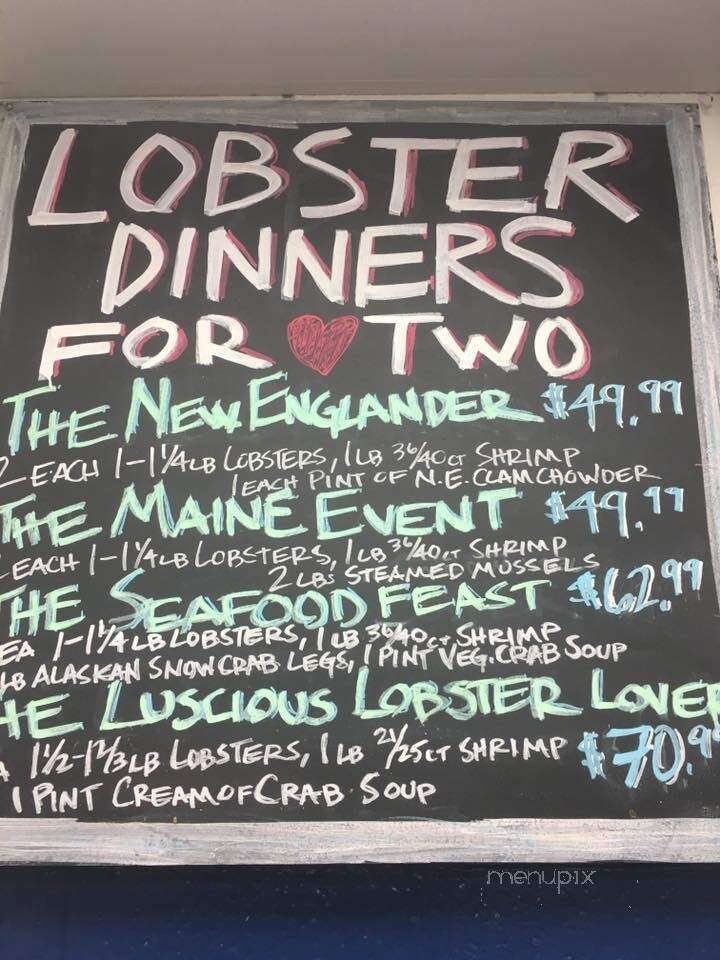 LOBSTER
DINNERS
FOR TWO
THE NEW ENGLANDER $49.99
2 EACH 1-1 1/4 LB LOBSTERS, 1 LB 36/40 CT SHRIMP
1 EACH PINT OF N.E. CLAM CHOWDER
THE MAINE EVENT $49.99
EACH 1-1 1/4 LB LOBSTERS, 1 LB 36/40 CT SHRIMP
2 LBS STEAMED MUSSELS
THE SEAFOOD FEAST $62.99
EA 1-1 1/4 LB LOBSTERS, 1 LB 36/40 CT SHRIMP
LB ALASKAN SNOW CRAB LEGS, 1 PINT VEG. CRAB SOUP
HE LUSCIOUS LOBSTER LOVER
A 1 1/2-1 2/3 LB LOBSTERS, 1 LB 21/25 CT SHRIMP $70.9
1 PINT CREAM OF CRAB SOUP
menupix